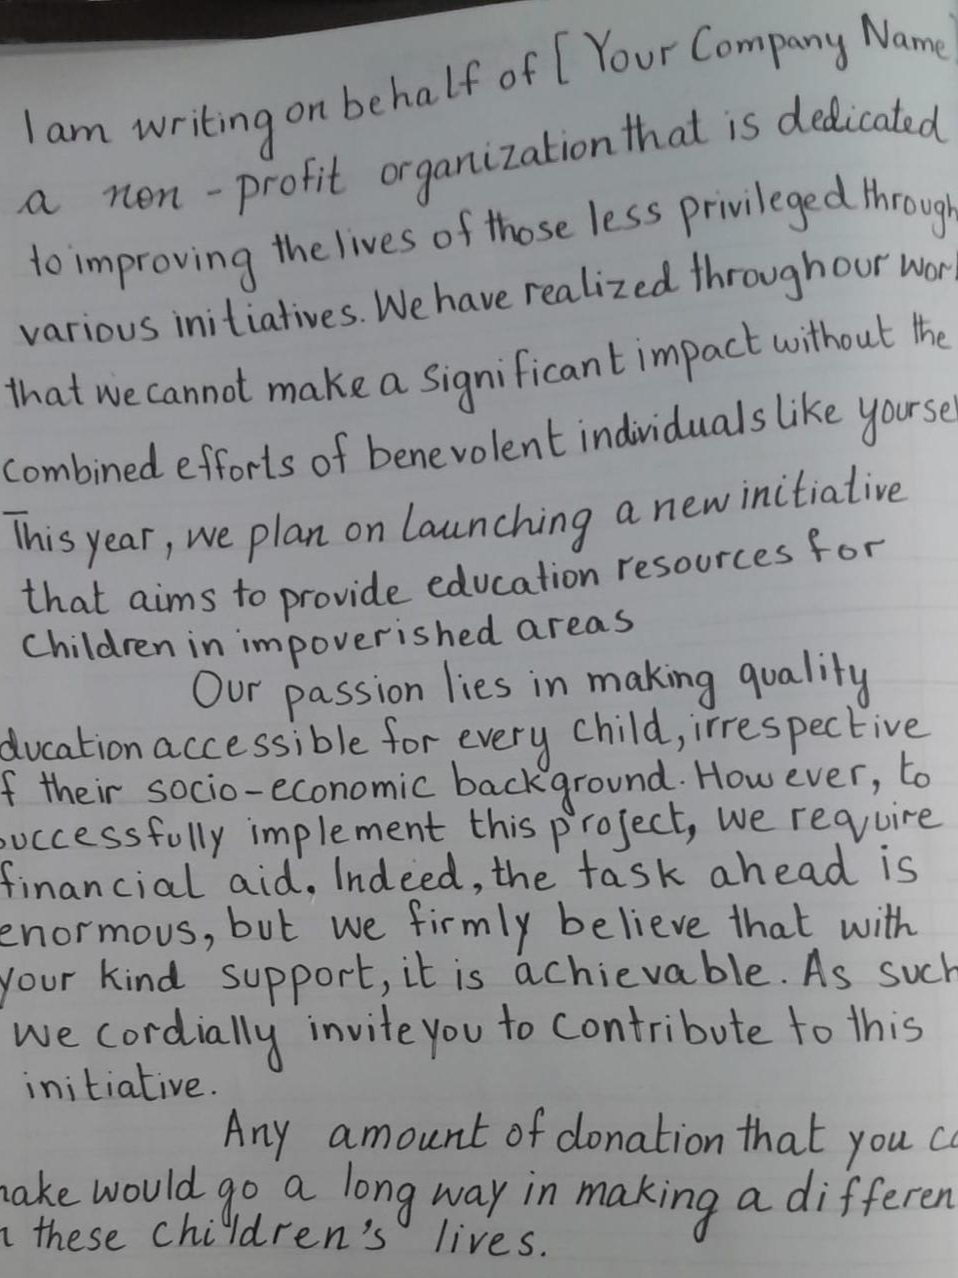 I am writing on behalf of [Your Company Name]
a non-profit organization that is dedicated
to improving the lives of those less privileged through
various initiatives. We have realized through our wor
that we cannot make a significant impact without the
combined efforts of benevolent individuals like yoursel
This year, we plan on launching a new initiative
that aims to provide education resources for
Children in impoverished areas
Our passion lies in making quality
ducation accessible for every child, irrespective
f their socio-economic background. However, to
uccessfully implement this project, we require
financial aid. Indeed, the task ahead is
enormous, but we firmly believe that with
your kind support, it is achievable. As such
we cordially invite you to contribute to this
initiative.
Any amount of donation that you ca
make would go a long way in making a differen
n these children's lives.